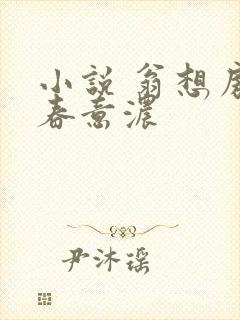 小説 翁想
春意濃
尹沐瑶